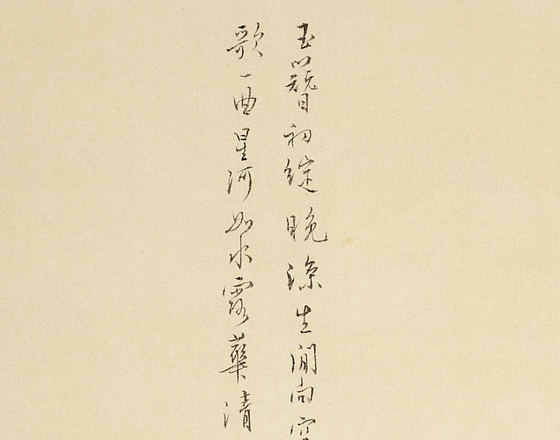 玉簪初綻晚涼生閒向
歌一曲星河如水露華清